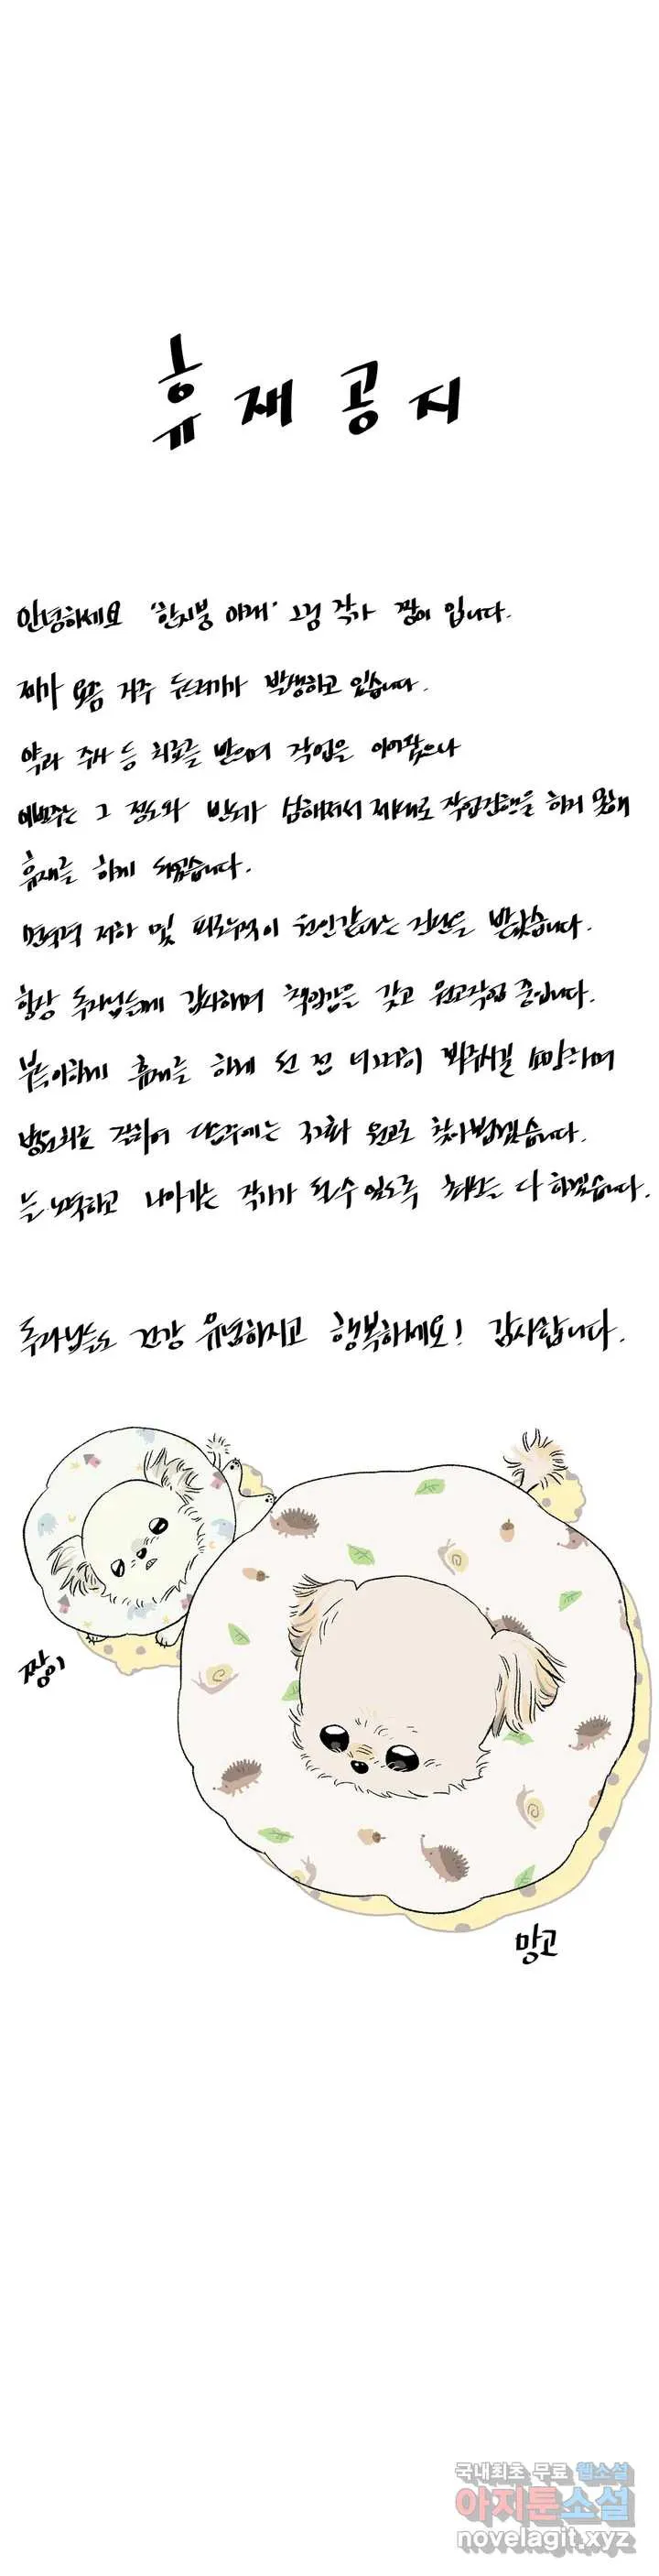 휴재공지
안녕하세요 '한지붕 아래' 그림 작가 짱이 입니다.
제가 요즘 자주 두드러기가 발생하고 있습니다.
약과 주사 등 치료를 받으며 작업을 이어갔으나
이번주는 그 정도와 빈도가 심해져서 제대로 작업진행을 하지 못해
휴재를 하게 되었습니다.
면역력 저하 및 피로누적이 원인같다는 진단을 받았습니다.
항상 독자님들께 감사하며 책임감을 갖고 원고작업 중입니다.
부득이하게 휴재를 하게 된 점 너그러히 봐주시길 소망하며
병원치료 잘하여 다음주에는 37화 원고로 찾아뵙겠습니다.
늘 노력하고 나아가는 작가가 될 수 있도록 최선을 다 하겠습니다.
독자님들도 건강 유념하시고 행복하세요! 감사합니다.
짱이
망고
국내최초 무료 웹소설
아지툰소설
novelagit.xyz